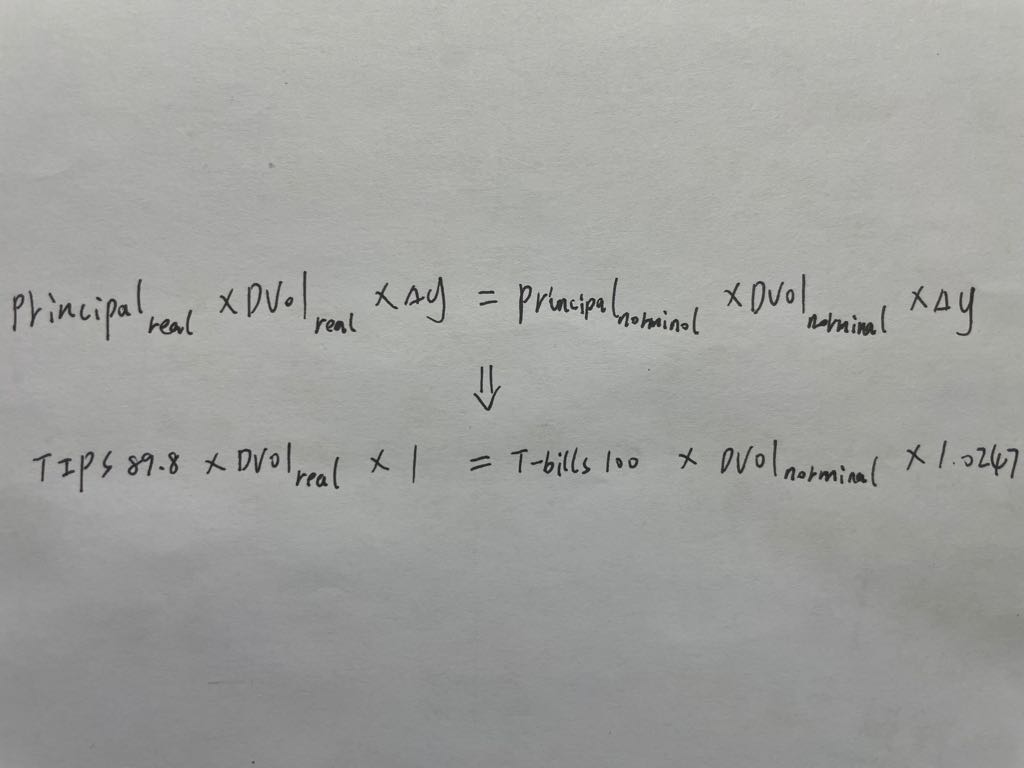 Principal real × DVol real × Δy = principal norminol × DVol norminal × Δy
⇓
TIPS 89.8 × DVol real × 1 = T-bills 100 × DVol norminal × 1.0247